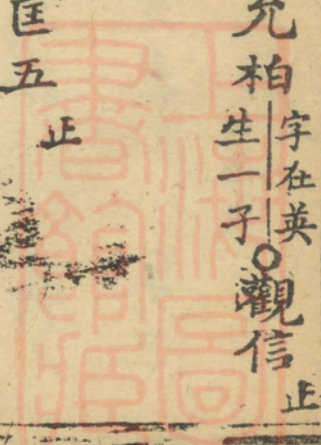 允柏
字在英
生一子
觀信
正
匡五
正